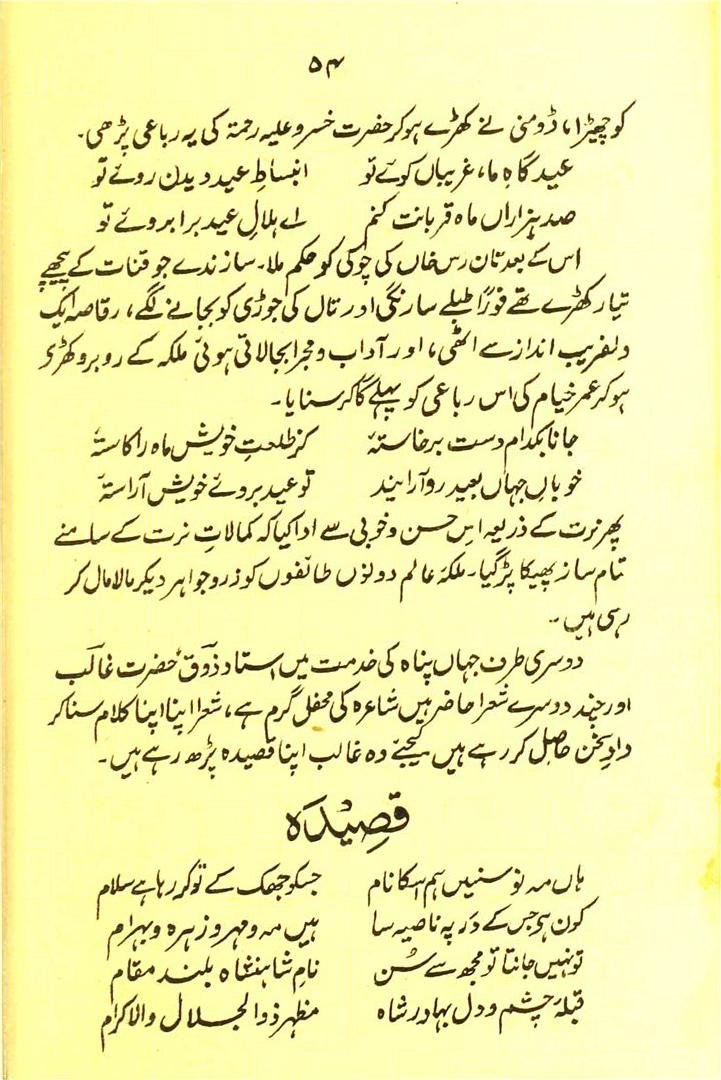 ۵۴
کو چھیڑا، ڈومنی نے کھڑے ہوکر حضرت خسرو علیہ رحمۃ کی یہ رباعی پڑھی۔
عید گاہِ ما، غریباں کوئے تو انبساطِ عید دیدن روئے تو
صد ہزاراں ماہ قربانت کنم اے ہلالِ عید برابروئے تو
اس کے بعد تان رس خاں کی چوکی کو حکم ملا۔ سازندے جو قنات کے پیچھے
تیار کھڑے تھے فوراً طبلے سارنگی اور تال کی جوڑی کو بجانے لگے، رقاصہ ایک
دلفریب انداز سے اٹھی، اور آداب و مجرا بجالاتی ہوئی ملکہ کے روبرو کھڑی
ہوکر عمر خیام کی اس رباعی کو پہلے گاکر سنایا۔
جانا بکدام دست برخاستۂ کز طلعتِ خویش ماہ را کاستۂ
خوبانِ جہاں بعید رو آرایند تو عید بروئے خویش آراستۂ
پھر نرت کے ذریعہ اس حسن و خوبی سے ادا کیا کہ کمالاتِ نرت کے سامنے
تمام ساز پھیکا پڑگیا۔ ملکۂ عالم دونوں طائفوں کو زر و جواہر دیکر مالامال کر
رہی ہیں۔
دوسری طرف جہاں پناہ کی خدمت میں استاد ذوق، حضرت غالب
اور چند دوسرے شعرا حاضر ہیں شاعرہ کی محفل گرم ہے، شعرا اپنا اپنا کلام سناکر
دادِ سخن حاصل کر رہے ہیں لیجئے وہ غالب اپنا قصیدہ پڑھ رہے ہیں۔
قصیدہ
ہاں مہ نو سنیں ہم اسکا نام جسکو جھک کے تو کر رہا ہے سلام
کون ہی جس کے در پہ ناصیہ سا ہیں مہ و مہر و زہرہ و بہرام
تو نہیں جانتا تو مجھ سے سُن نامِ شاہنشاہ بلند مقام
قبلۂ چشم و دل بہادر شاہ مظہر ذوالجلال والاکرام